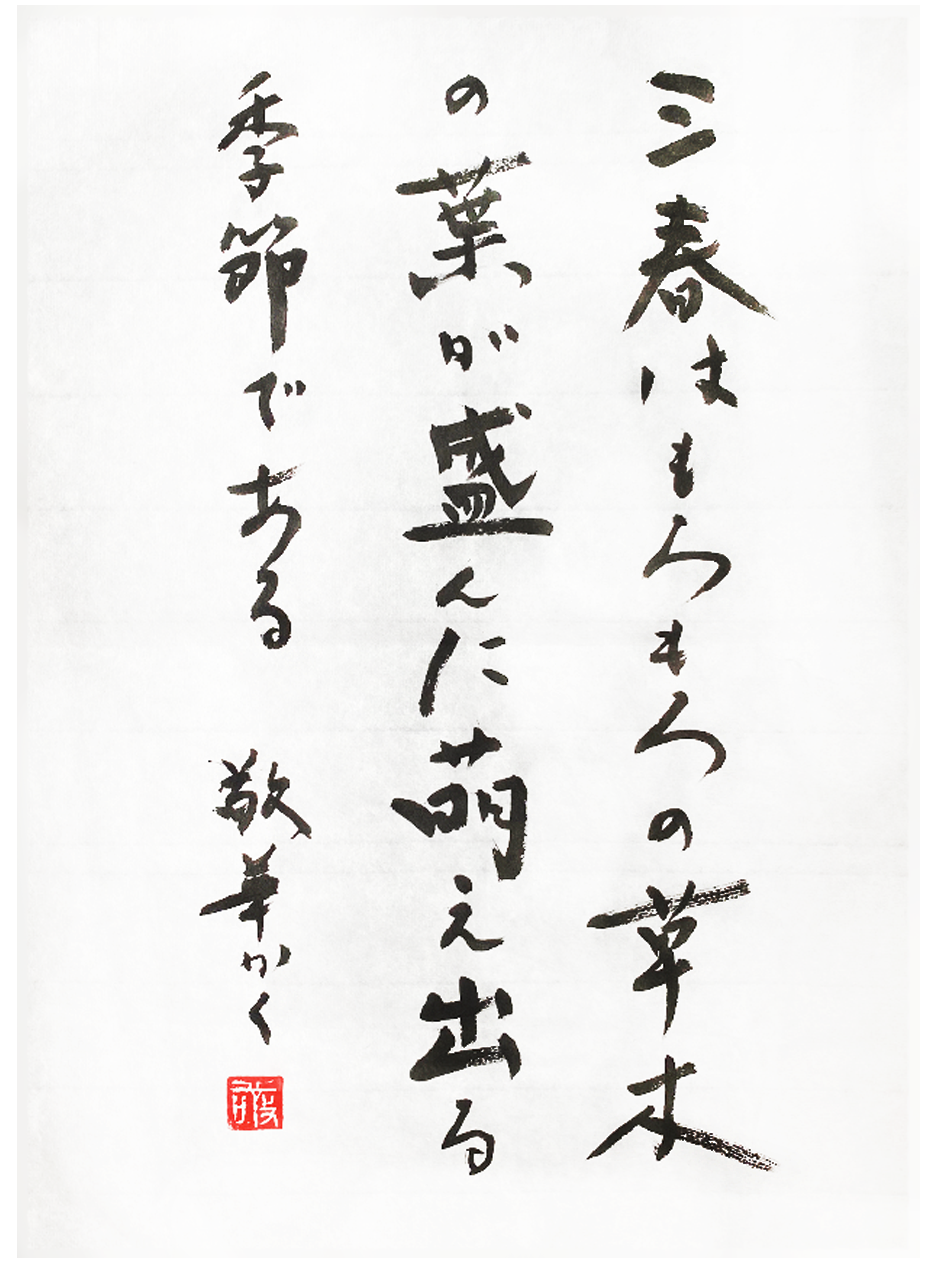 三春はもろもろの草木
の葉が盛んに萌え出る
季節である 敬華かく